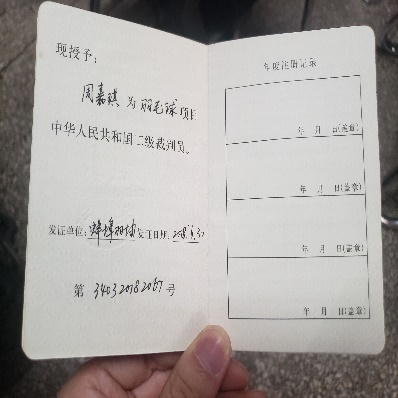 现授予：
周嘉琪 为 羽毛球 项目
中华人民共和国二级裁判员。
发证单位：蚌埠 发证日期：
第 340320182067 号
年度注册记录
年 月 日(盖章)
年 月 日(盖章)
年 月 日(盖章)
年 月 日(盖章)